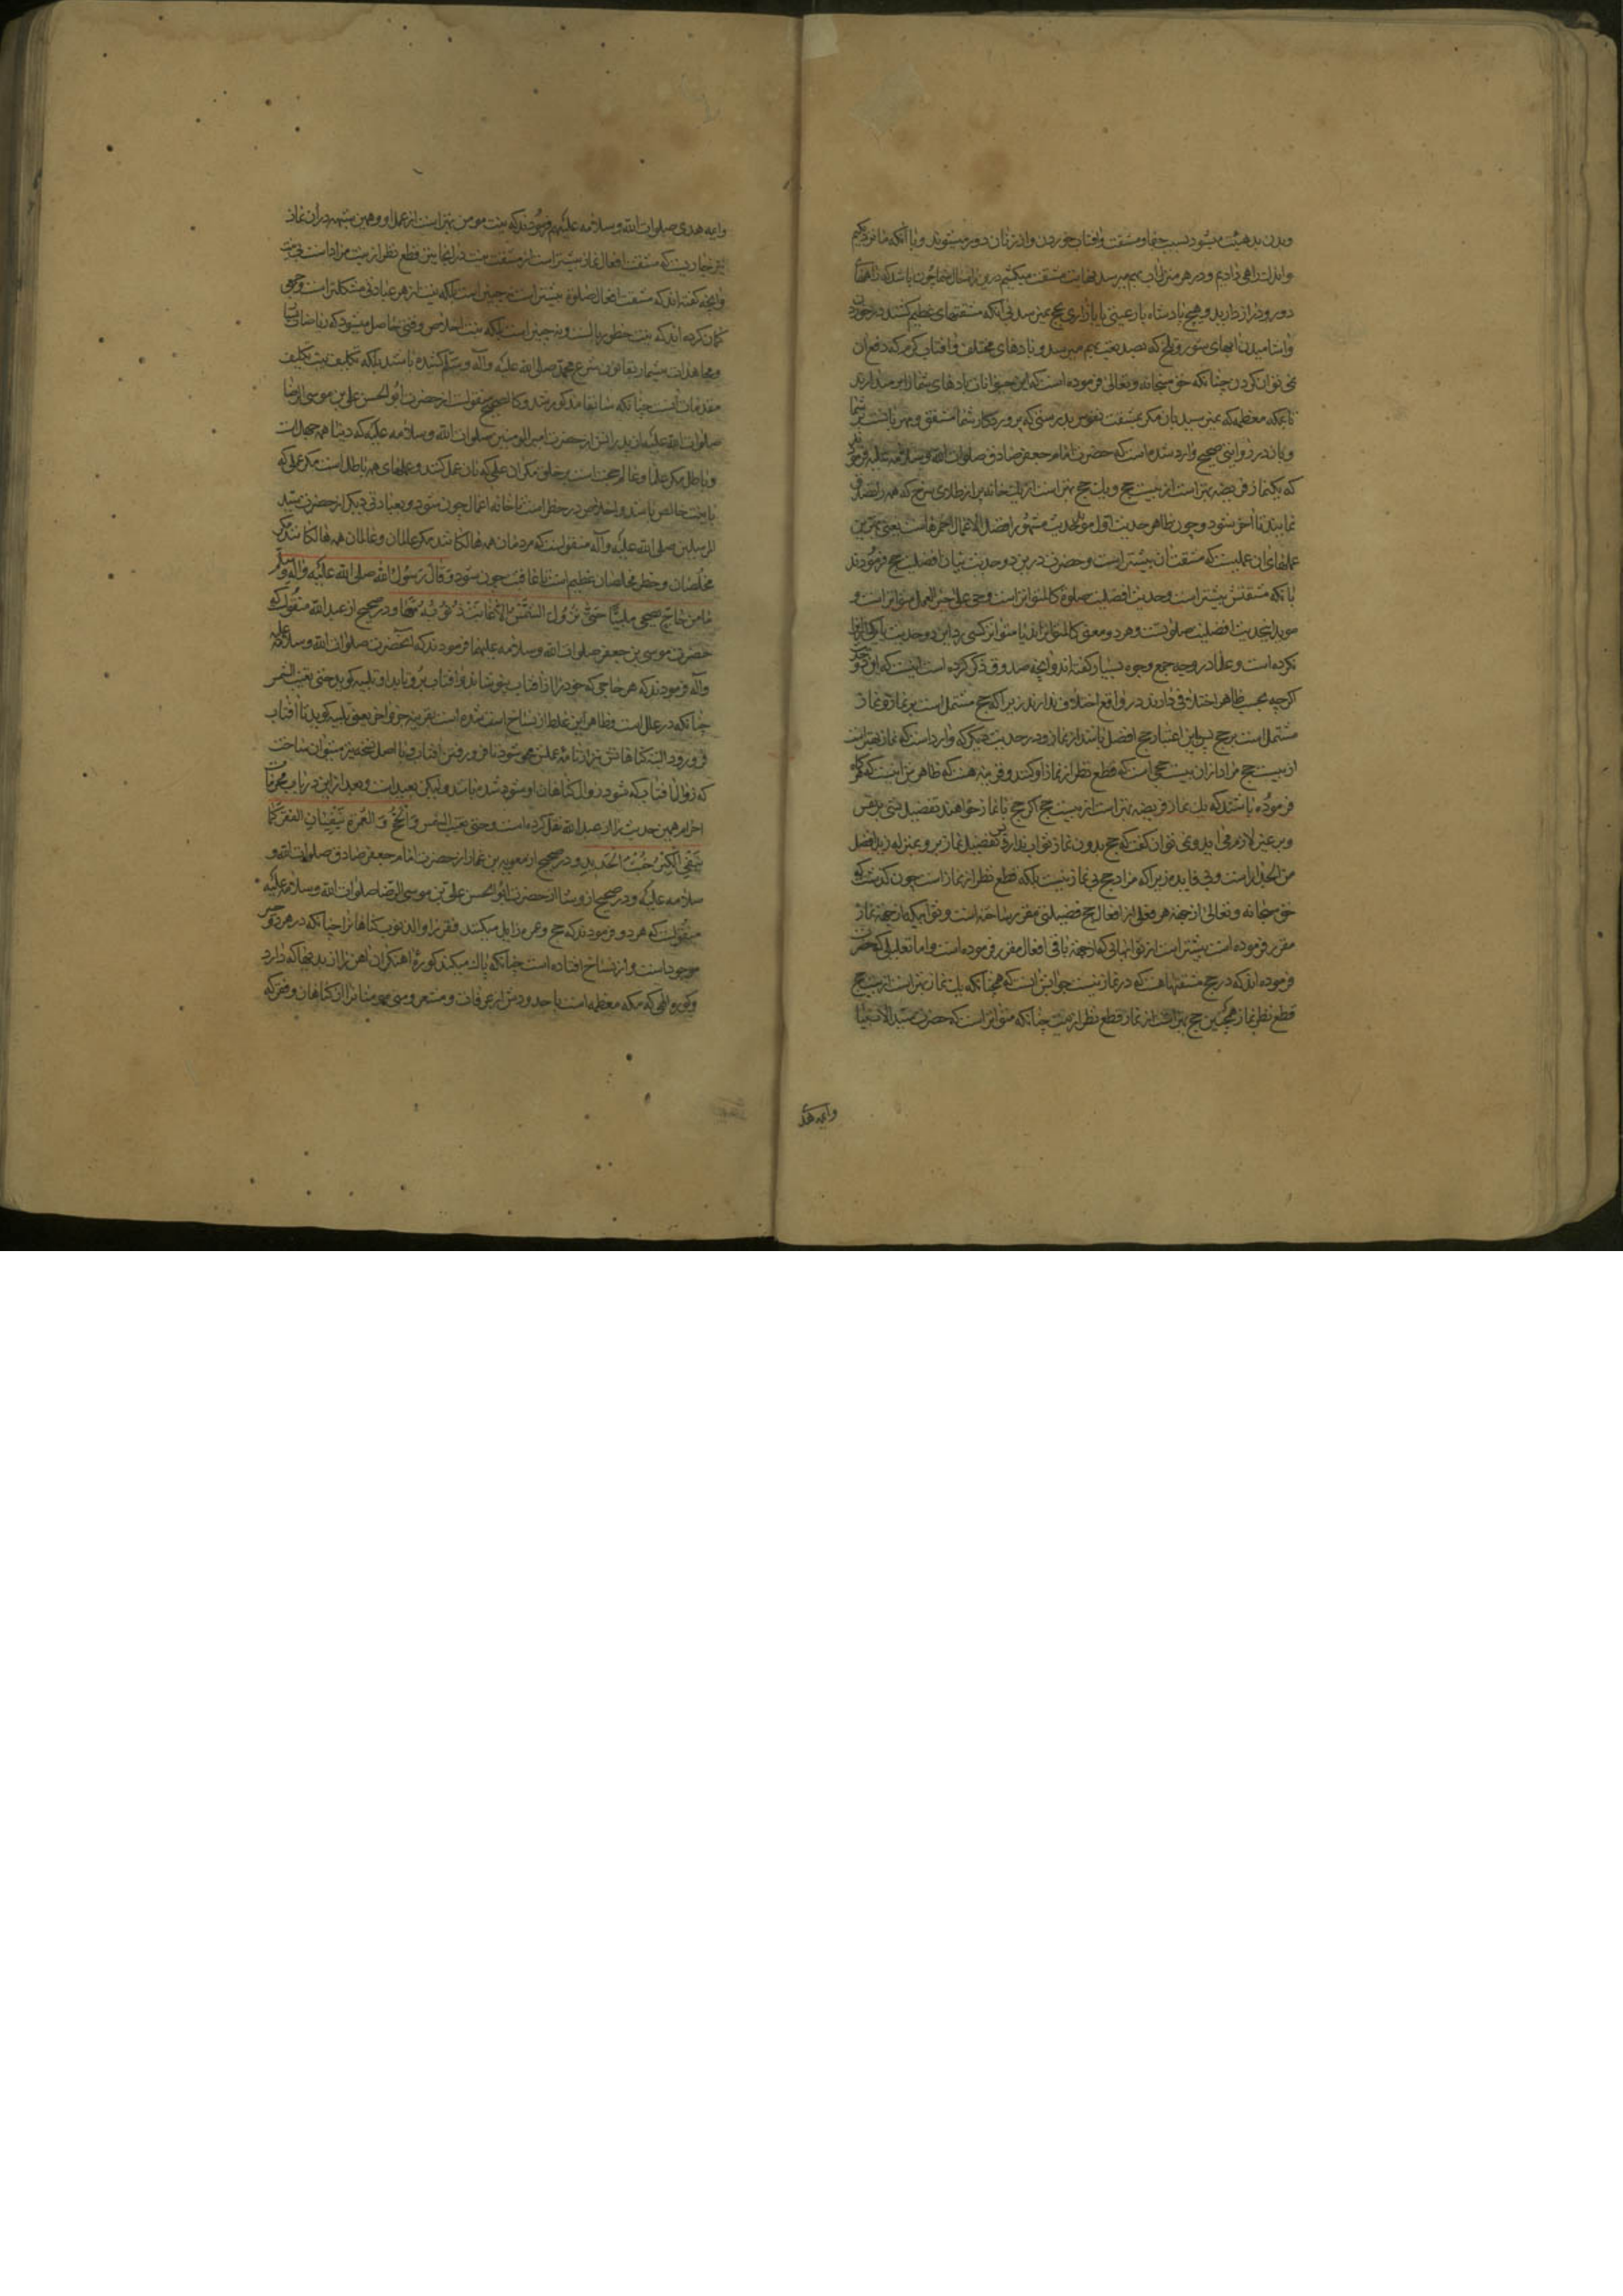 وبدن بدهیئت میشود بسبب جفا و مشقت و آفتاب خوردن و از زنان دور میشوند و با آنکه ما نزدیکیم
و اندك راهی داریم و در هر منزل آب بهم میرسد نهایت مشقت میکشیم در پس حال شما چون باشد که راههای
دور و دراز دارید و هیچ پادشاه یا رعیتی یا بازاری بحج نمیرسد بی آنکه مشقتهای عظیم کشند در خوردن
و آشامیدن آبهای شور و تلخ که بصد تعب بهم میرسد و بادهای مختلف و آفتاب گرم که دفع آن
نمی توان کردن چنانکه حق سبحانه و تعالی فرموده است که این حیوانات بارهای شما را بر میدارند
تا بمکه معظمه که نمیرسید بآن مگر بمشقت نفوس بدرستی که پروردگار شما مشفق و مهربانست بر شما
و باز در روایتی صحیح وارد شده است که حضرت امام جعفر صادق صلوات الله و سلامه علیه فرمودند
که یکنماز فریضه بهتر است از بیست حج و یك حج بهتر است از یك خانه پر از طلای سرخ که همه را تصدق
نمایند تا آخر شود و چون ظاهر حدیث اول موافق حدیث مشهور افضل الاعمال احمزهاست یعنی بهترین
عملهای آن عملیست که مشقت آن بیشتر است و حضرت درین دو حدیث بیان افضلیت حج فرمودند
با آنکه مشقتش بیشتر است و حدیث افضلیت صلوة کالمتواتر است و حی علی خیر العمل متواتر است و
موید اینحدیث افضلیت صلوتست و هر دو معنی کالمتواترند یا متواتر کسی رد این دو حدیث
نکرده است و علما در وجه جمع وجوه بسیار گفته اند و آنچه صدوق ذکر کرده است اینست که این دو حدیث
اگرچه بحسب ظاهر اختلافی دارند در واقع اختلاف ندارند زیرا که حج مشتمل است بر نماز و نماز
مشتمل است بر حج پس باین اعتبار حج افضل باشد از نماز و در حدیث دیگر که وارد است که نماز بهتر است
از بیست حج مراد از آن بیست حجی است که قطع نظر از نماز او کنند و قرینه هست که ظاهر مرا اینست که هرگاه
فرموده باشند که یك نماز فریضه بهتر است از بیست حج اگر حج با نماز خواهند تفضیل شئ بر نفس
و بر غیر لازم می آید و نمی توان گفت که حج بدون نماز ثواب ندارد پس تفضیل نماز بر و بمنزله زید افضل
من الجدار است و بی فایده زیرا که مراد حج بی نماز نیست بلکه قطع نظر از نماز است چون گذشت که
حق سبحانه و تعالی از جهة هر فعلی از افعال حج فضیلتی مقرر ساخته است و ثوابیکه از جهة نماز
مقرر فرموده است بیشتر است از ثوابهائی که از جهة باقی افعال مقرر فرموده است و اما تعلیلی که حضرت
فرموده اند که در حج مشقتها هست که در نماز نیست جوابش آنست که همچنانکه یك نماز بهتر است از بیست حج
قطع نظر از نماز همچنین حج بهتر است از نماز قطع نظر از نیت چنانکه متواتر است که حضرت سید الانبیا
وایمه هد
وایمه هدی صلوات الله و سلامه علیهم فرمودند که نیت مومن بهتر است از عمل او و همین شبهه در آن نماز
نیز جاریست که مشقت افعال نماز بیشتر است از مشقت نیت در اینجا نیز قطع نظر از نیت مراد است بی نیت
و آنچه گفته اند که مشقت افعال صلوة بیشتر است نه چنین است بلکه نیت از هر عبادتی مشکلتر است و جمعی
گمان کرده اند که نیت خطور بالست و نه چنین است بلکه نیت اخلاص وقتی حاصل میشود که ریاضات
و مجاهدات بیشمار بقانون شرع محمد صلی الله علیه و آله و سلم کشیده باشند بلکه تکلیف نیت تکلیف
مقدمات آنست چنانکه سابقا مذکور شد و کالصحیح منقولست از حضرت ابو الحسن علی بن موسی الرضا
صلوات الله علیه از پدرانش از حضرت امیر المومنین صلوات الله و سلامه علیه که دنیا همه جهل است
و باطل مگر علما و عالم حجت است بر خلق مگر آن علمی که بآن عمل کنند و عملهای همه باطل است مگر عملی که
با نیت خالص باشد و اخلاص در خطر است تا خاتمه اعمال چون شود و بعبارتی دیگر از حضرت سید
المرسلین صلی الله علیه و آله منقولست که مردمان همه هالکانند مگر عالمان و عالمان همه هالکانند مگر
مخلصان و خطر مخلصان عظیم است تا عاقبت چون شود و قال رسول الله صلی الله علیه و آله و سلم
ما من حاج یضحی ملبیا حتی تزول الشمس الا غابت ذنوبه معها و در صحیح از عبد الله منقولست که
حضرت موسی بن جعفر صلوات الله و سلامه علیهما فرمودند که آنحضرت صلوات الله و سلامه علیه
و آله فرمودند که هر حاجی که خود را از آفتاب نپوشاند و آفتاب برو تابد و تلبیه گوید حتی تغیب الشمس
چنانکه در علل است و ظاهرا این غلط از نساخ است شده است بقرینه جزو آخر یعنی تلبیه گوید تا آفتاب
فرو رود البته گناهانش نیز از نامه عملش محو شود با فرو رفتن آفتاب و با اصل نسخه نیز میتوان ساخت
که زوال آفتاب که شود زوال گناهان او شود شده باشد و لیکن بعید است و بعد از این در باب محرمات
احرام همین حدیث را از عبد الله نقل کرده است و حتی تغیب الشمس و الحج و العمرة ینفیان الفقر کما
ینفی الکیر خبث الحدید و در صحیح از معویه بن عمار از حضرت امام جعفر صادق صلوات الله و
سلامه علیه و در صحیح از وشا از حضرت ابو الحسن علی بن موسی الرضا صلوات الله و سلامه علیه
منقولست که هر دو فرمودند که حج و عمره زایل میکنند فقر را و الذنوب گناهانرا چنانکه در هر دو خبر
موجود است و از نساخ افتاده است چنانکه پاك میکند کورۀ آهنگران آهن را از بدیها که دارد
و کوره الهی که مکه معظمه است با حدودش از عرفات و مشعر و منی